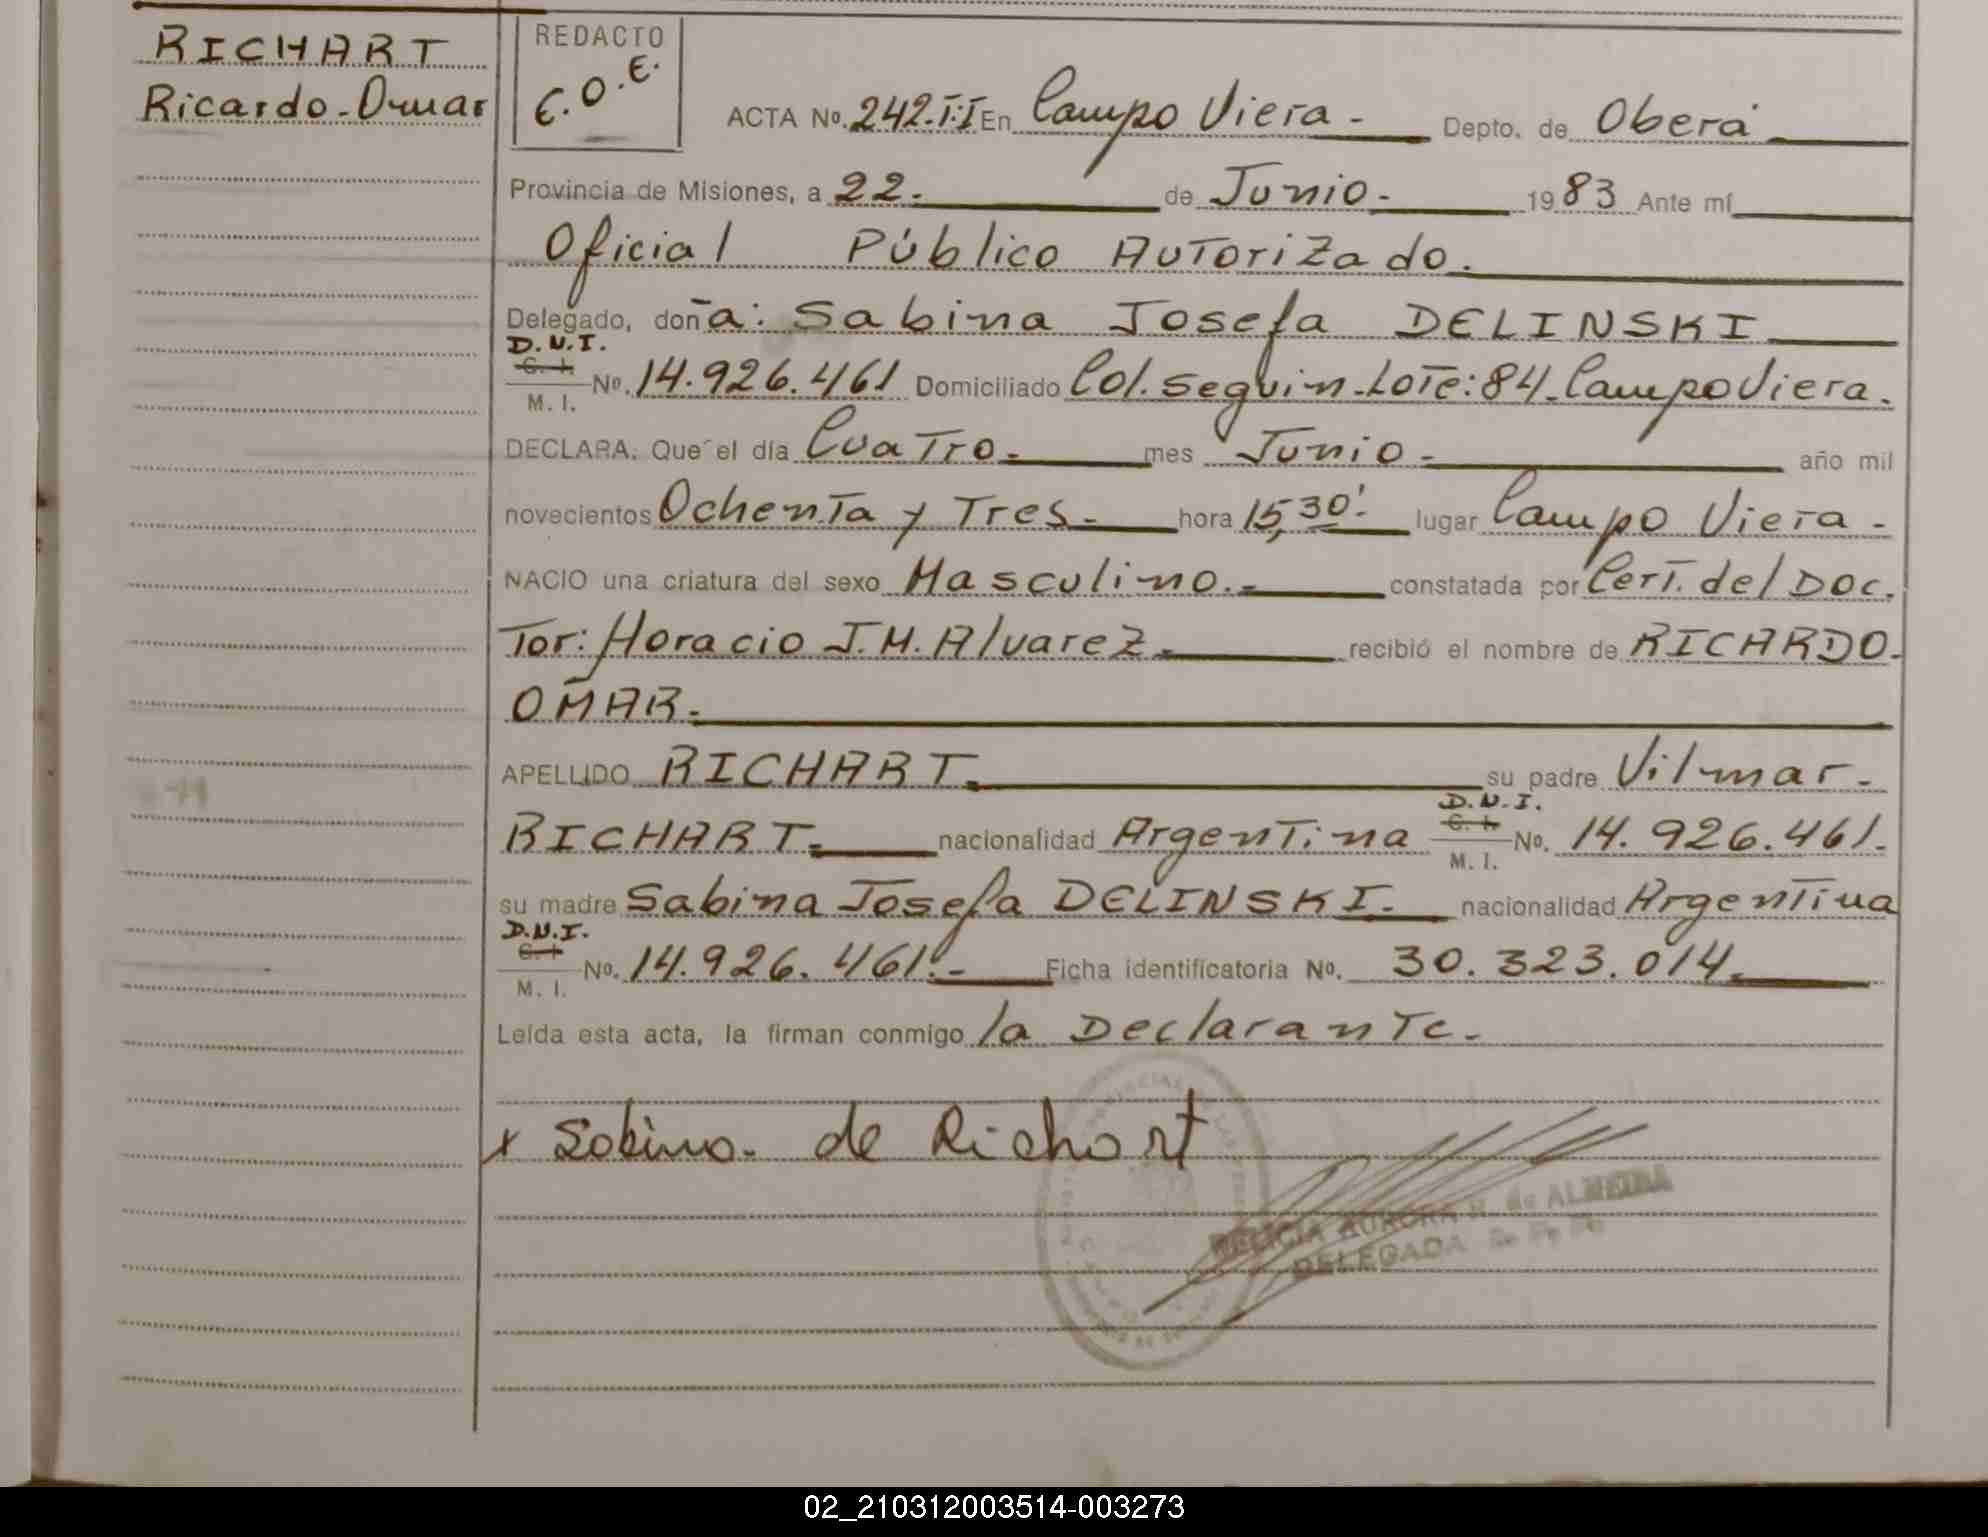 RICHART
Ricardo-Omar
REDACTO
C.O.E.
ACTA No. 242.T:I En Campo Viera.- Depto. de Oberá
Provincia de Misiones, a 22. de Junio.- 1983 Ante mí
Oficial Público Autorizado.
Delegado, doña: Sabina Josefa DELINSKI
D.N.I.
C. I.
M. I. No. 14.926.461 Domiciliado Col. Seguin-Lote:84-Campo Viera.
DECLARA: Que el día Cuatro.- mes Junio.- año mil
novecientos Ochenta y Tres.- hora 15,30'. lugar Campo Viera.-
NACIO una criatura del sexo Masculino.- constatada por Cert. del Doc.
Tor: Horacio J.M. Alvarez.- recibió el nombre de RICARDO-
OMAR.-
APELLIDO RICHART.- su padre Vilmar.-
D.N.I.
RICHART.- nacionalidad Argentina C. I. No. 14.926.461.
M. I.
su madre Sabina Josefa DELINSKI.- nacionalidad Argentina
D.N.I.
C. I.
M. I. No. 14.926.461.- Ficha identificatoria No. 30.323.014.-
Leída esta acta, la firman conmigo la Declarante.-
x Sabina. de Richart
AURORA de ALMEIDA
DELEGADA
02_210312003514-003273